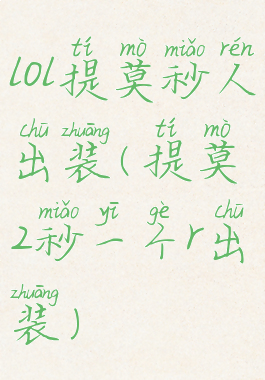 tí mò miǎo rén
lol提莫秒人
chū zhuāng tí mò
出装(提莫
miǎo yī gè chū
2秒一个r出
zhuāng
装)